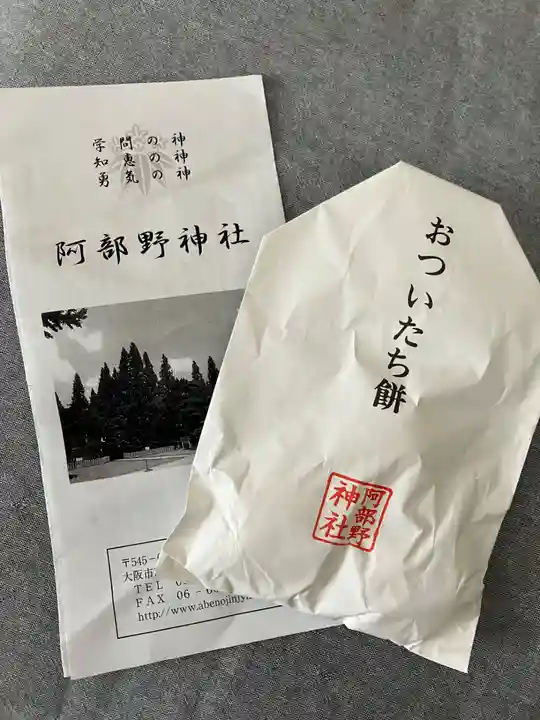 神の勇気
神の知恵
神の学問
阿部野神社
〒545-
大阪市
TEL
FAX 06-
http://www.abenojinjya
おついたち餅
阿部野
神社